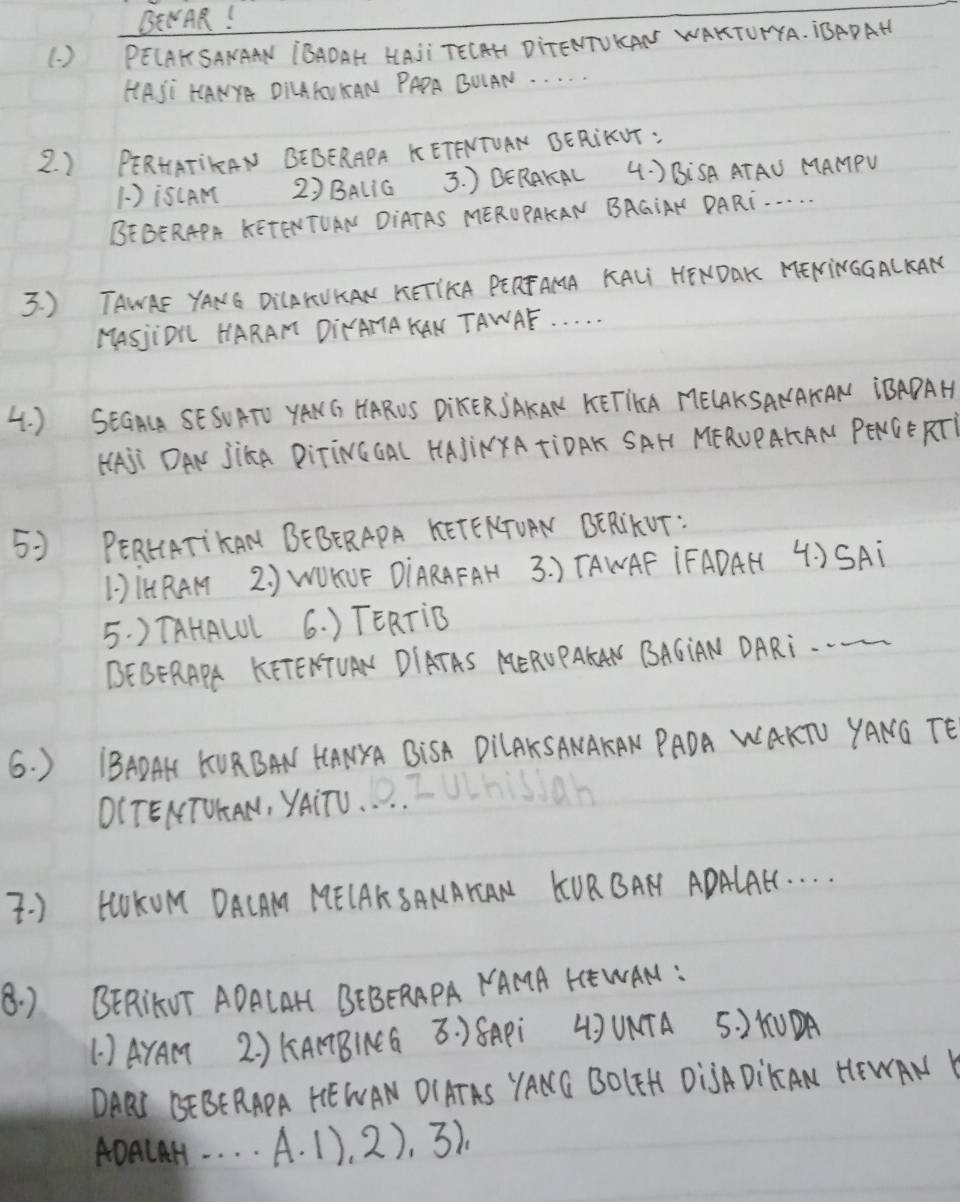 BENAR !
1.) PELAKSANAAN IBADAH HAJI TELAH DITENTUKAN WAKTUNYA. IBADAH
HAJI HANYA DILAKUKAN PADA BULAN .....
2.) PERHATIKAN BEBERAPA KETENTUAN BERIKUT :
1.) ISLAM 2.) BALIG 3.) BERAKAL 4.) BISA ATAU MAMPU
BEBERAPA KETENTUAN DIATAS MERUPAKAN BAGIAN DARI .....
3.) TAWAF YANG DILAKUKAN KETIKA PERTAMA KALI HENDAK MENINGGALKAN
MASJIDIL HARAM DINAMAKAN TAWAF .....
4.) SEGALA SESUATU YANG HARUS DIKERJAKAN KETIKA MELAKSANAKAN IBADAH
HAJI DAN JIKA DITINGGAL HAJINYA TIDAK SAH MERUPAKAN PENGERTI
5.) PERHATIKAN BEBERAPA KETENTUAN BERIKUT :
1.) IHRAM 2.) WUKUF DIARAFAH 3.) TAWAF IFADAH 4.) SAI
5.) TAHALUL 6.) TERTIB
BEBERAPA KETENTUAN DIATAS MERUPAKAN BAGIAN DARI .....
6.) IBADAH KURBAN HANYA BISA DILAKSANAKAN PADA WAKTU YANG TE
DITENTUKAN, YAITU .....
7.) HUKUM DALAM MELAKSANAKAN KURBAN ADALAH ....
8.) BERIKUT ADALAH BEBERAPA NAMA HEWAN :
1.) AYAM 2.) KAMBING 3.) SAPI 4.) UNTA 5.) KUDA
DARI BEBERAPA HEWAN DIATAS YANG BOLEH DIJADIKAN HEWAN K
ADALAH .... A. 1), 2), 3).